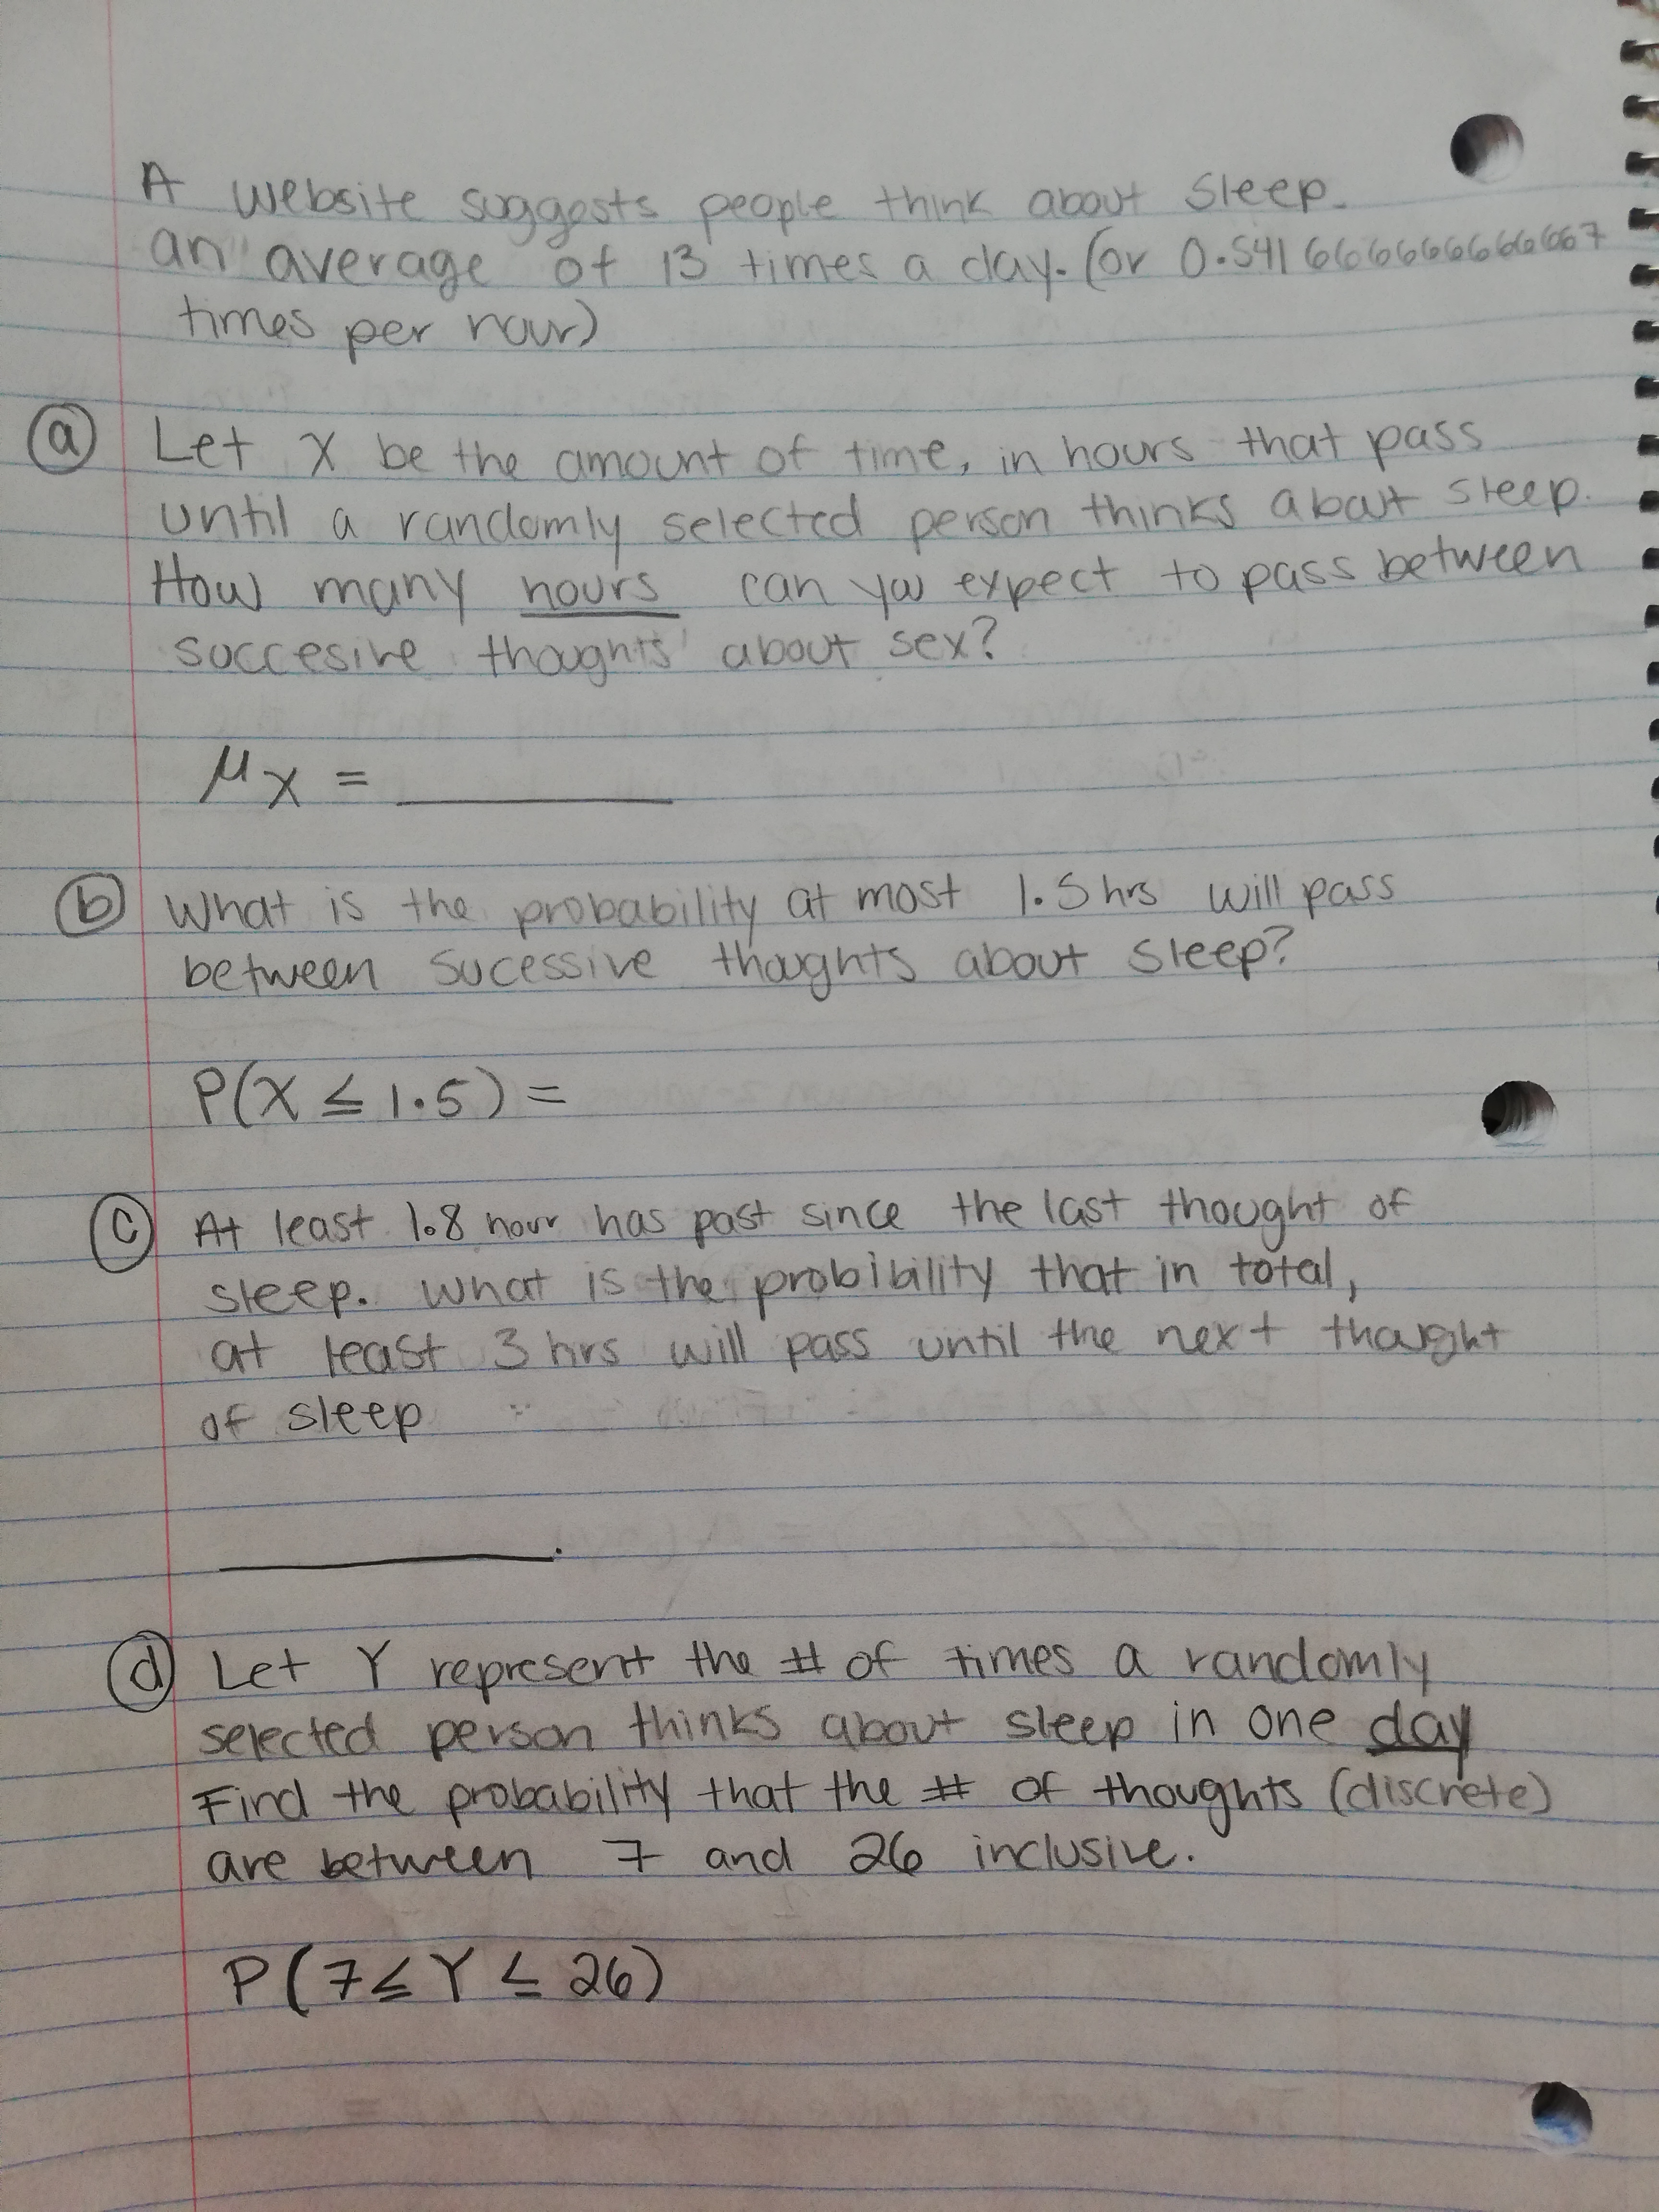 A website suggests people think about sleep.
an average of 13 times a day. (or 0.541666666666667
times per hour)
(a) Let X be the amount of time, in hours that pass
until a randomly selected person thinks about sleep.
How many hours can you expect to pass between
succesive thoughts about sex?
μx = ________
(b) What is the probability at most 1.5 hrs will pass
between sucessive thoughts about sleep?
P(X ≤ 1.5) =
(c) At least 1.8 hour has past since the last thought of
sleep. What is the probibility that in total,
at least 3 hrs will pass until the next thought
of sleep
________.
(d) Let Y represent the # of times a randomly
selected person thinks about sleep in one day
Find the probability that the # of thoughts (discrete)
are between 7 and 26 inclusive.
P(7 ≤ Y ≤ 26)